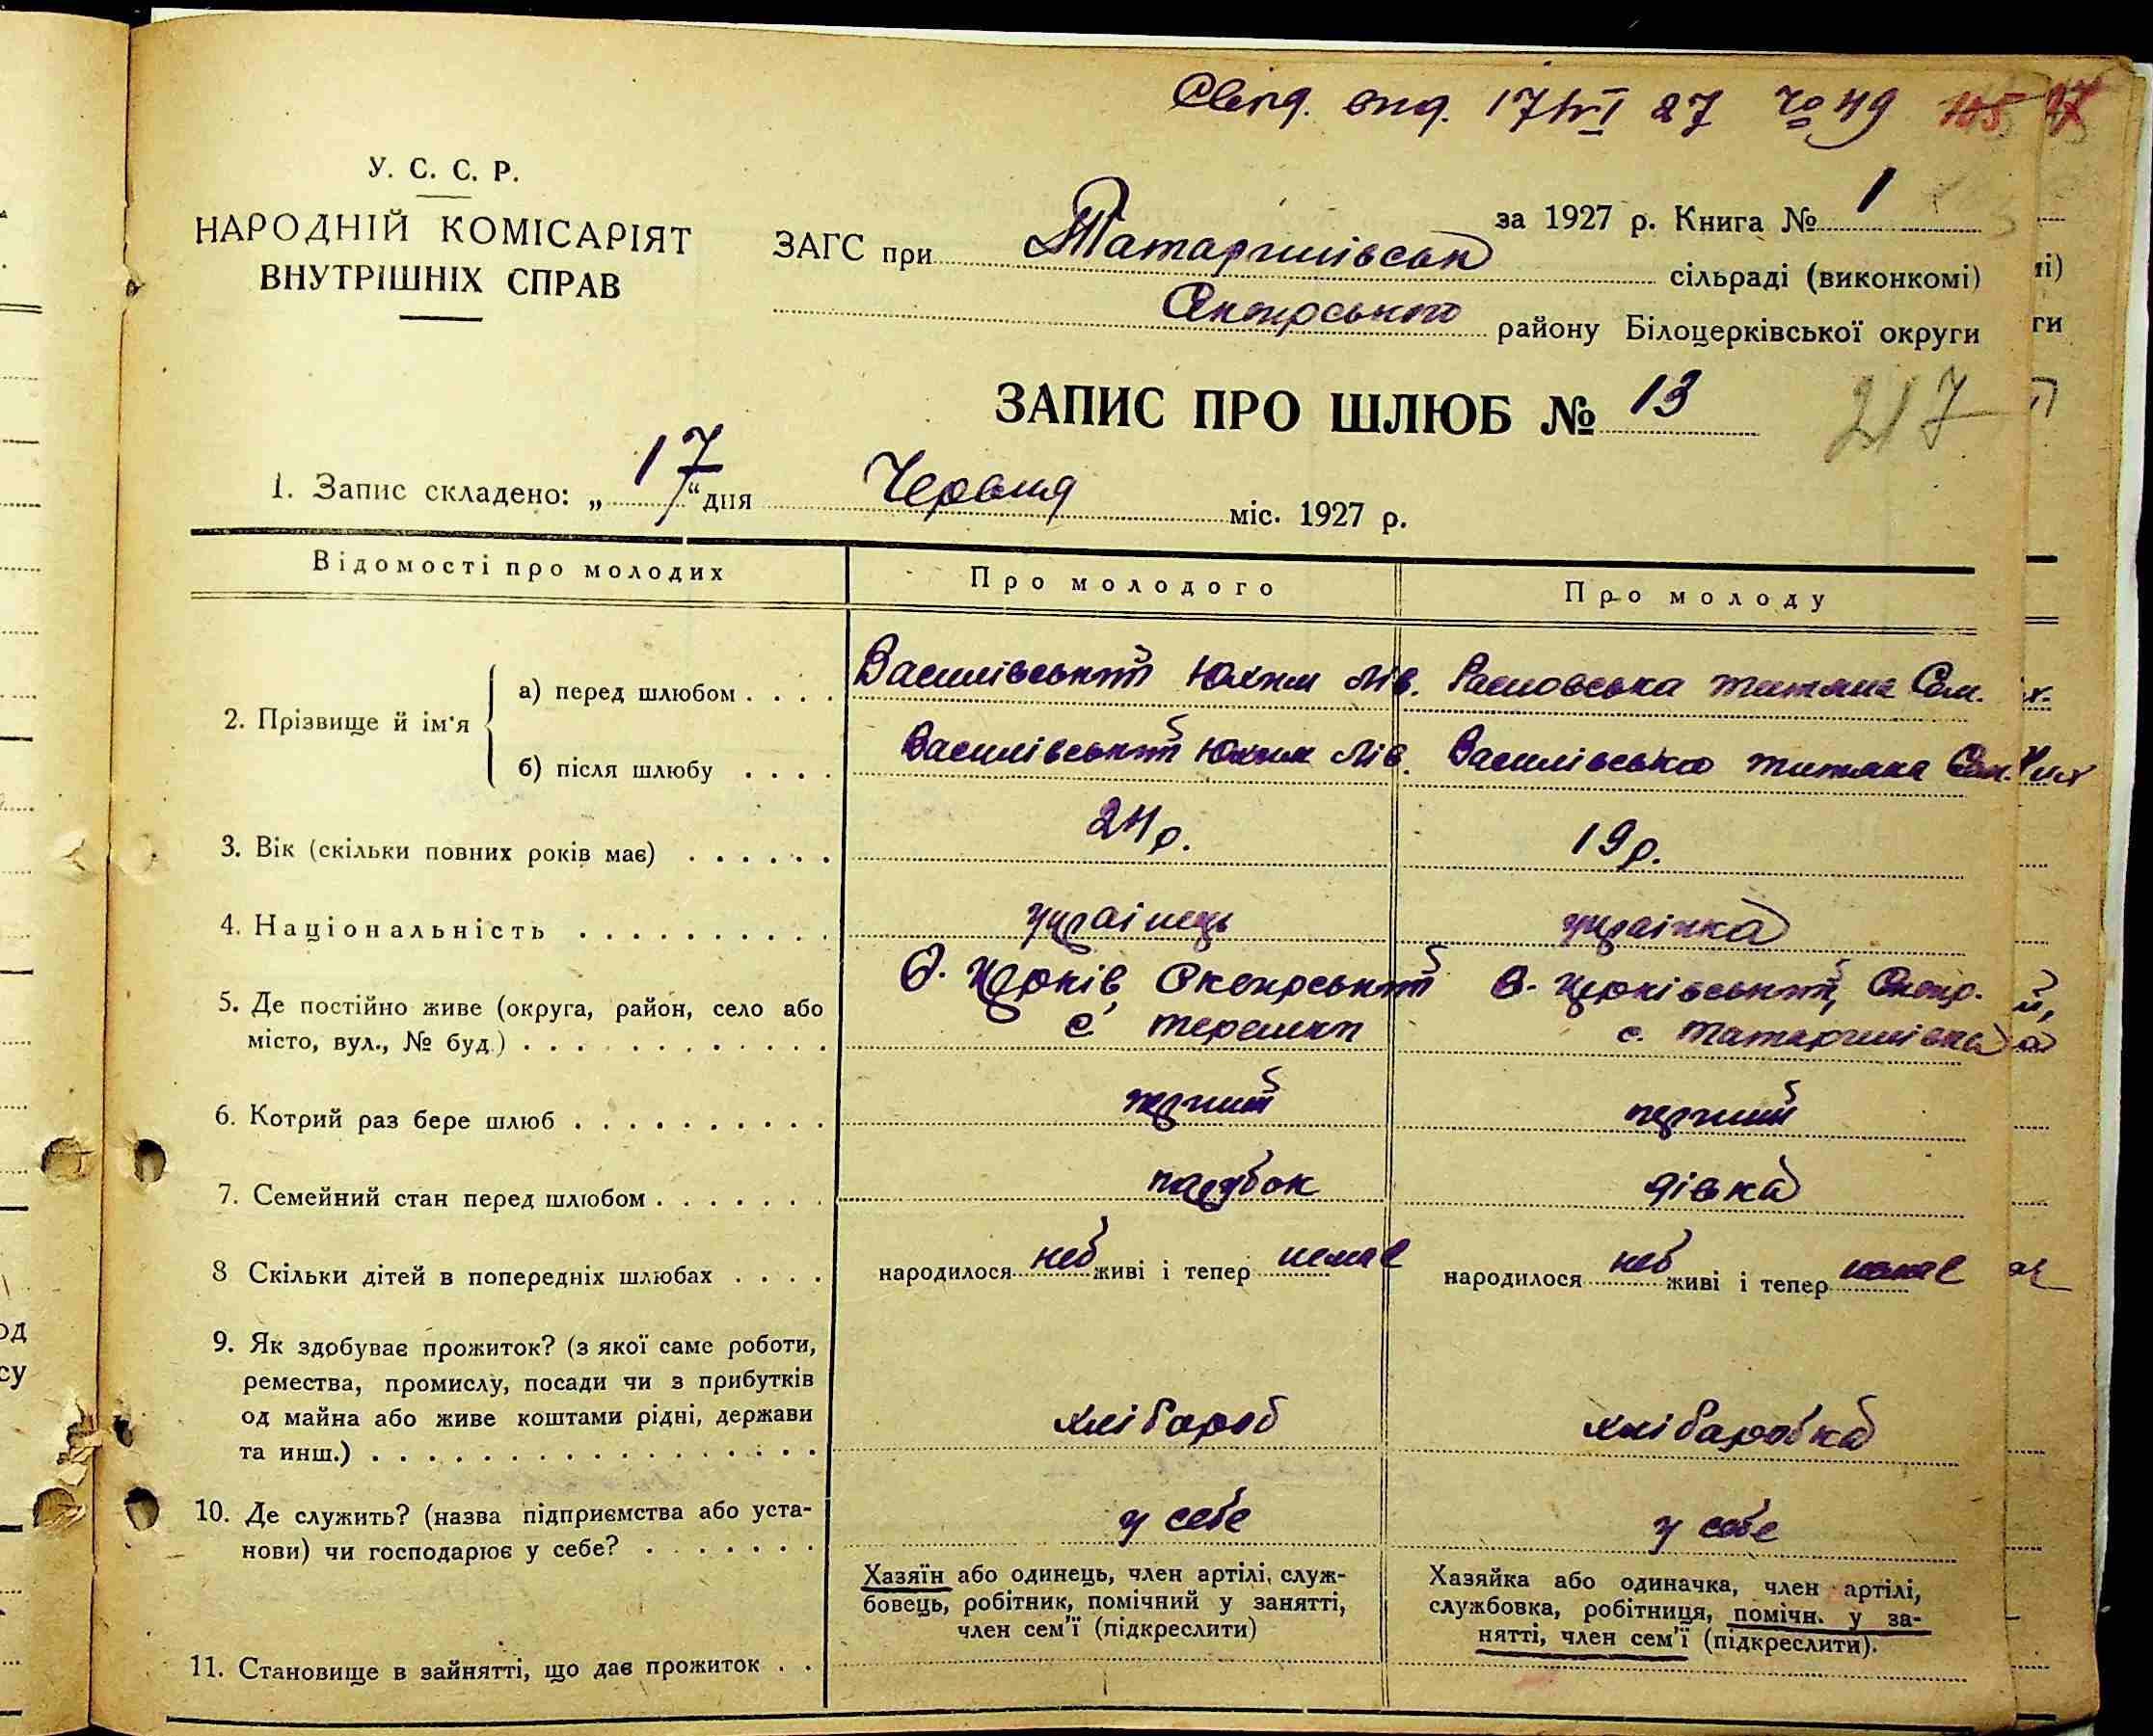 Свідч. вид. 17/VI 27 № 49 105 27
У. С. С. Р.
НАРОДНІЙ КОМІСАРІЯТ
ВНУТРІШНІХ СПРАВ
за 1927 р. Книга № 1
ЗАГС при Татаринівськ сільраді (виконкомі)
Сквирського району Білоцерківської округи
ЗАПИС ПРО ШЛЮБ № 13
217
1. Запис складено: „ 17 “ дня Червня міс. 1927 р.
Відомості про молодих Про молодого Про молоду
2. Прізвище й ім'я
а) перед шлюбом . . . . Василівський Юхим Лів. Татяна Сам.
б) після шлюбу . . . . Василівський Юхим Лів. Василівська Татяна Сам.
3. Вік (скільки повних років має) . . . . . . 24 р. 19 р.
4. Національність . . . . . . . . . . українець українка
5. Де постійно живе (округа, район, село або
місто, вул., № буд.) . . . . . . . . . . .
Б. Церків, Сквирський
с. Терешки
Б. Церківський, Сквир.
с. Татаринівка
6. Котрий раз бере шлюб . . . . . . . . . . перший перший
7. Семейний стан перед шлюбом . . . . . . . парубок дівка
8 Скільки дітей в попередніх шлюбах . . . . народилося неб живі і тепер немає народилося неб живі і тепер немає
9. Як здобуває прожиток? (з якої саме роботи,
ремества, промислу, посади чи з прибутків
од майна або живе коштами рідні, держави
та инш.) . . . . . . . . . . . . . . . . хлібароб хлібаробка
10. Де служить? (назва підприємства або уста-
нови) чи господарює у себе? . . . . . . . у себе у себе
Хазяїн або одинець, член артілі, служ-
бовець, робітник, помічний у занятті,
член сем'ї (підкреслити)
Хазяйка або одиначка, член артілі,
службовка, робітниця, помічн. у за-
нятті, член сем'ї (підкреслити).
11. Становище в зайнятті, що дає прожиток . .